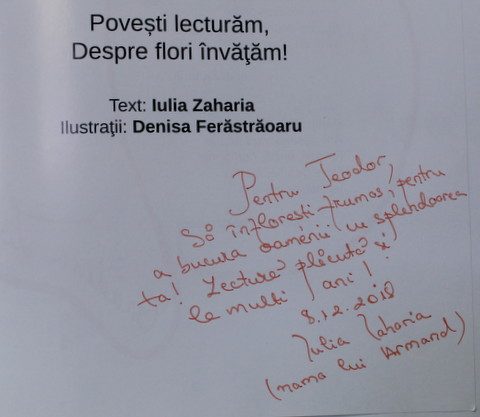 Povești lecturăm,
Despre flori învăţăm!
Text: Iulia Zaharia
Ilustraţii: Denisa Ferăstrăoaru
Pentru Teodor,
Să înflorești frumos, pentru
a bucura oamenii cu splendoarea
ta! Lectură plăcută și
la mulți ani!
8.12.2018
Iulia Zaharia
(mama lui Armand)